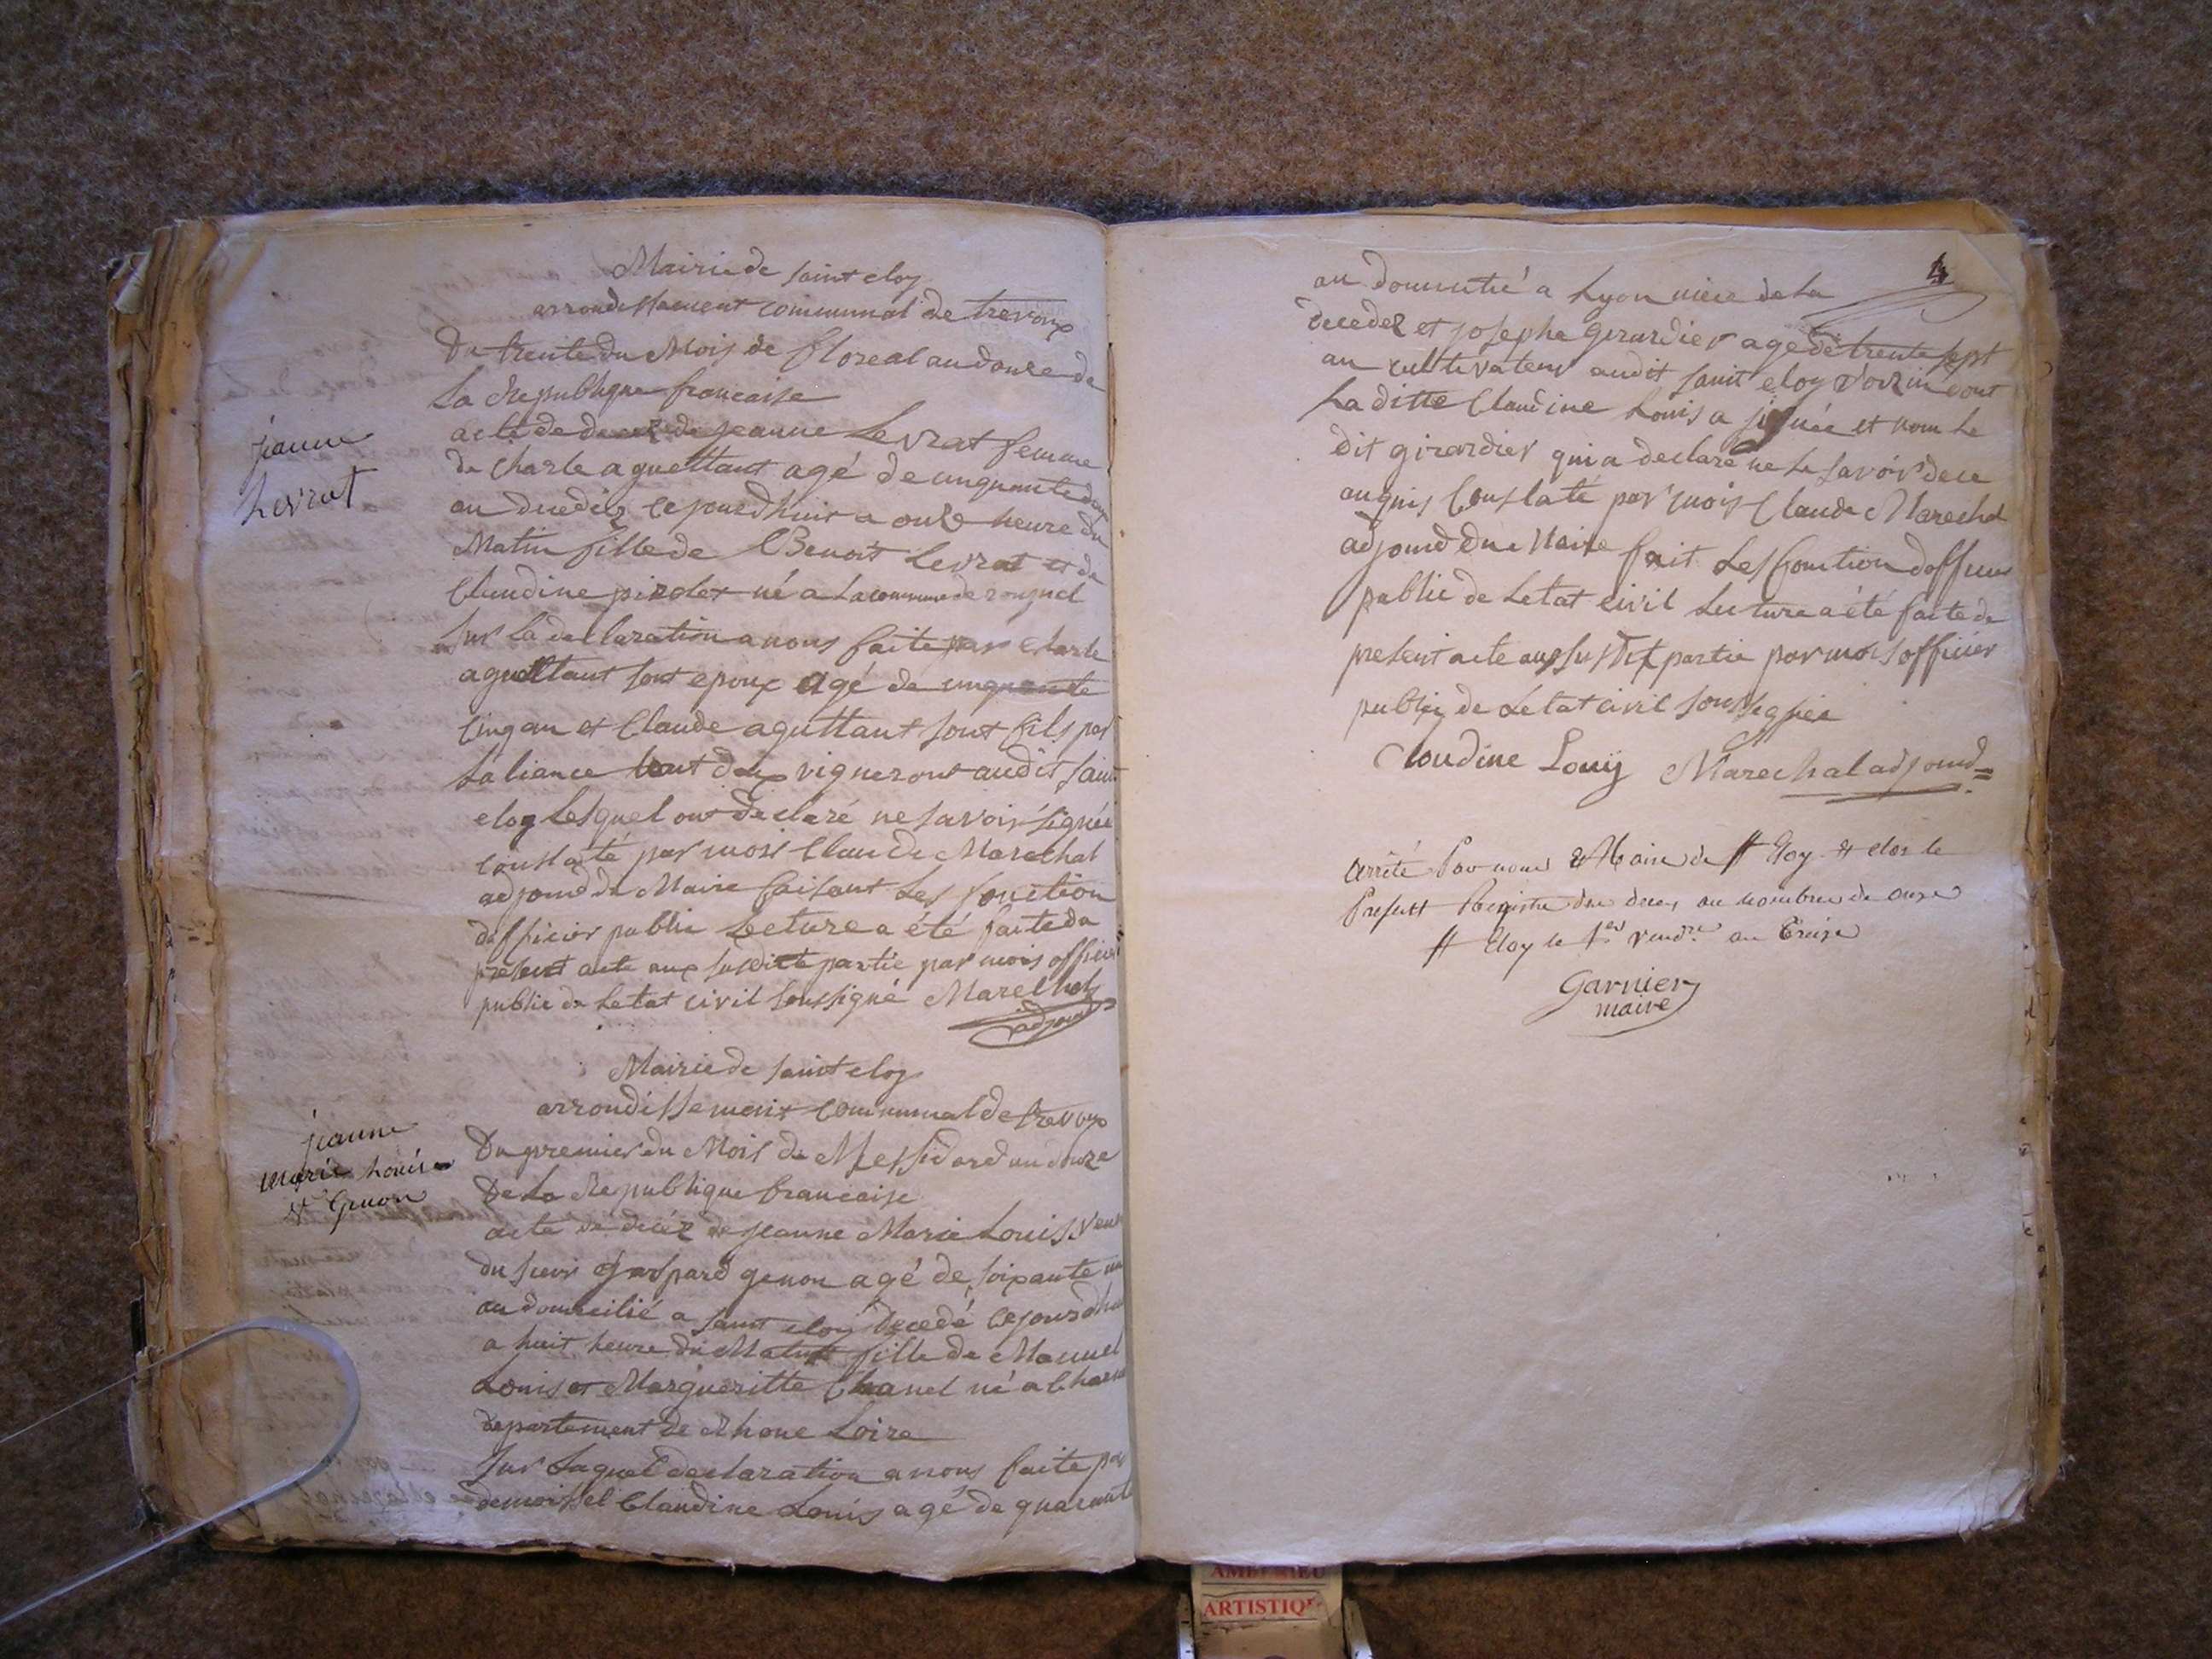 Mairie de saint eloy
arrondissement communal de trevoux
Du trente du Mois de floreal an douze de
La Republique francaise
acte de decez de jeanne Levrat femme
de charle aguettant agé de cinquante deux
an decedez ce jourdhuit a onze heure du
Matin fille de Benoit Levrat et de
Claudine pirolet né a La commune de
Sur La declaration a nous faite par charle
aguettant sont epoux agé de cinquante
cinq an et Claude aguttant sont fils par
Laliance tout deux vigneront audit saint
eloy Lesquel ont declaré ne savoir signée
constaté par mois Claude Marechal
adjoind du Maire faisant Les fonction
dofficier public Lecture a été faite du
present acte aux susdict partie par mois officier
public de Letat civil soussigné Marechal
adjoind
jeanne
Levrat
Mairie de saint eloy
arrondissement communal de trevoux
Du premier du Mois de Messidord an douze
De La Republique francaise
acte de decéz de jeanne Marie Louis veuve
du sieur gaspard genon agé de soixante un
an domicilié a saint eloy decedé ce jourdhui
a huit heure du Matin fille de Manuel
Louis et Margueritte Chanel né a
departement de Rhone Loire
Sur Laquel declaration a nous faite par
demoissel Claudine Louis agé de quarant
jeanne
marie Louise
Ve Genon
4
an domicilié a Lyon niece de La
decedez et josephe girardier agé de trente sept
an cultivateur audit saint eloy voizin dont
La ditte Claudine Louis a signée et nom Le
dit girardier qui a declaré ne Le savoir de ce
anquis Constaté par mois Claude Marechal
adjoind du Maire fait Les fonction dofficier
public de Letat civil Lecture a été faite du
present acte aux susdit partie par mois officier
public de Letat civil soussignée
Cloudine Louÿ Marechal adjoind
Arrêté Par nous Maire de St Eloy et clos le
Present Registre des deces au nombre de onze
St Eloy le 1er vendre an Treize
Garnier
maire
AMBERIEU
ARTISTIQUE